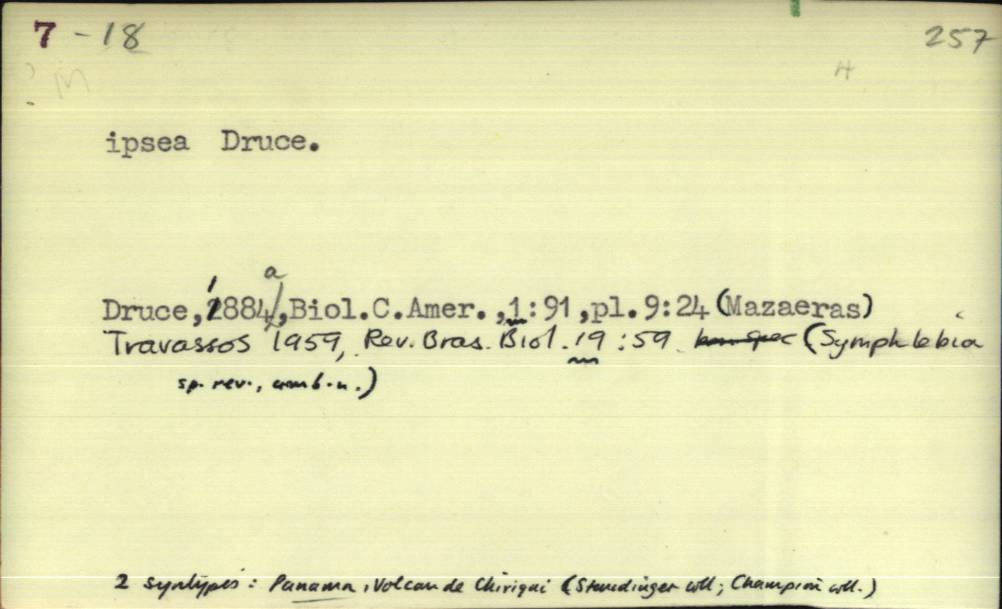 7 - 18 257
M H
ipsea Druce.
a
Druce, 1884, Biol.C.Amer.,1:91,pl.9:24 (Mazaeras)
Travassos 1959, Rev. Bras. Biol. 19:59 (Symphlebia
sp. rev., comb.n.)
2 syntypes: Panama, Volcan de Chiriqui (Staudinger coll; Champion coll.)